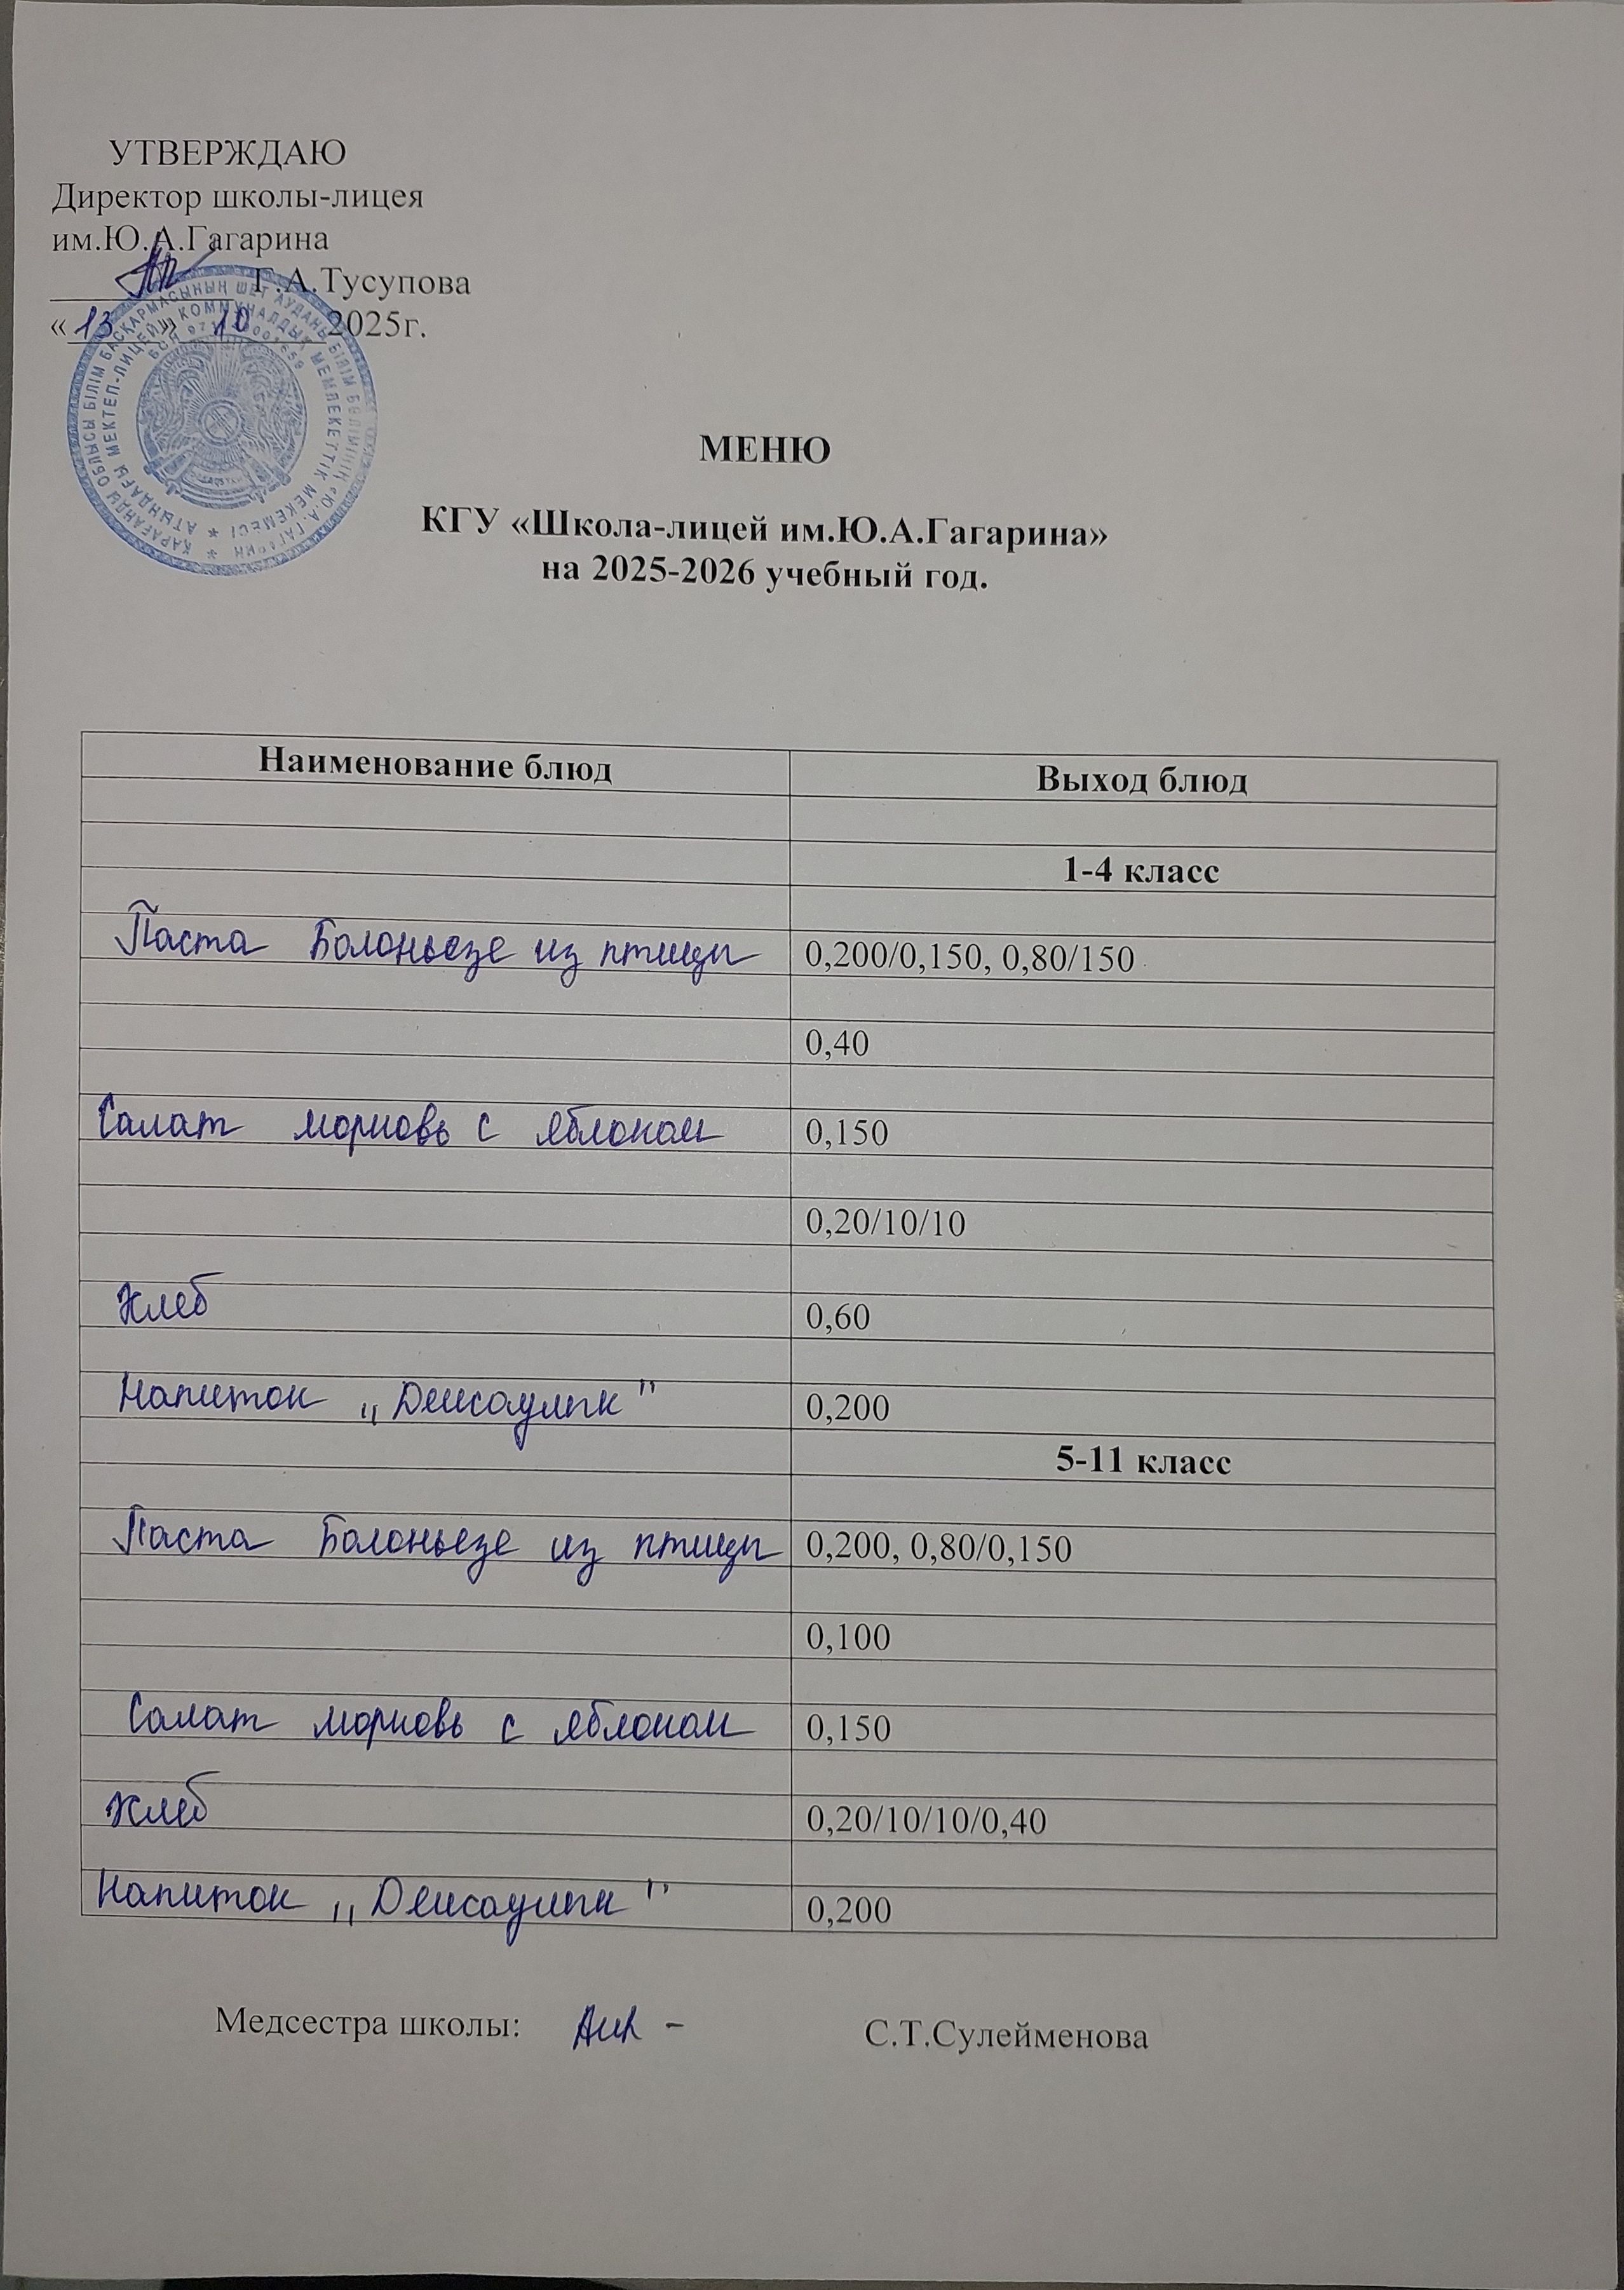 УТВЕРЖДАЮ
Директор школы-лицея
им.Ю.А.Гагарина
Г.А.Тусупова
«13» 10 2025г.
ҚАРАҒАНДЫ ОБЛЫСЫ БІЛІМ БАСҚАРМАСЫНЫҢ ШЕТ АУДАНЫ БІЛІМ БӨЛІМІНІҢ «Ю.А.ГАГАРИН
АТЫНДАҒЫ МЕКТЕП-ЛИЦЕЙІ» КОММУНАЛДЫҚ МЕМЛЕКЕТТІК МЕКЕМЕСІ
МЕНЮ
КГУ «Школа-лицей им.Ю.А.Гагарина»
на 2025-2026 учебный год.
Наименование блюд Выход блюд
1-4 класс
Паста Болоньезе из птицы 0,200/0,150, 0,80/150
0,40
Салат морковь с яблоком 0,150
0,20/10/10
Хлеб 0,60
Напиток „Денсаулық" 0,200
5-11 класс
Паста Болоньезе из птицы 0,200, 0,80/0,150
0,100
Салат морковь с яблоком 0,150
Хлеб 0,20/10/10/0,40
Напиток „Денсаулық" 0,200
Медсестра школы: С.Т.Сулейменова